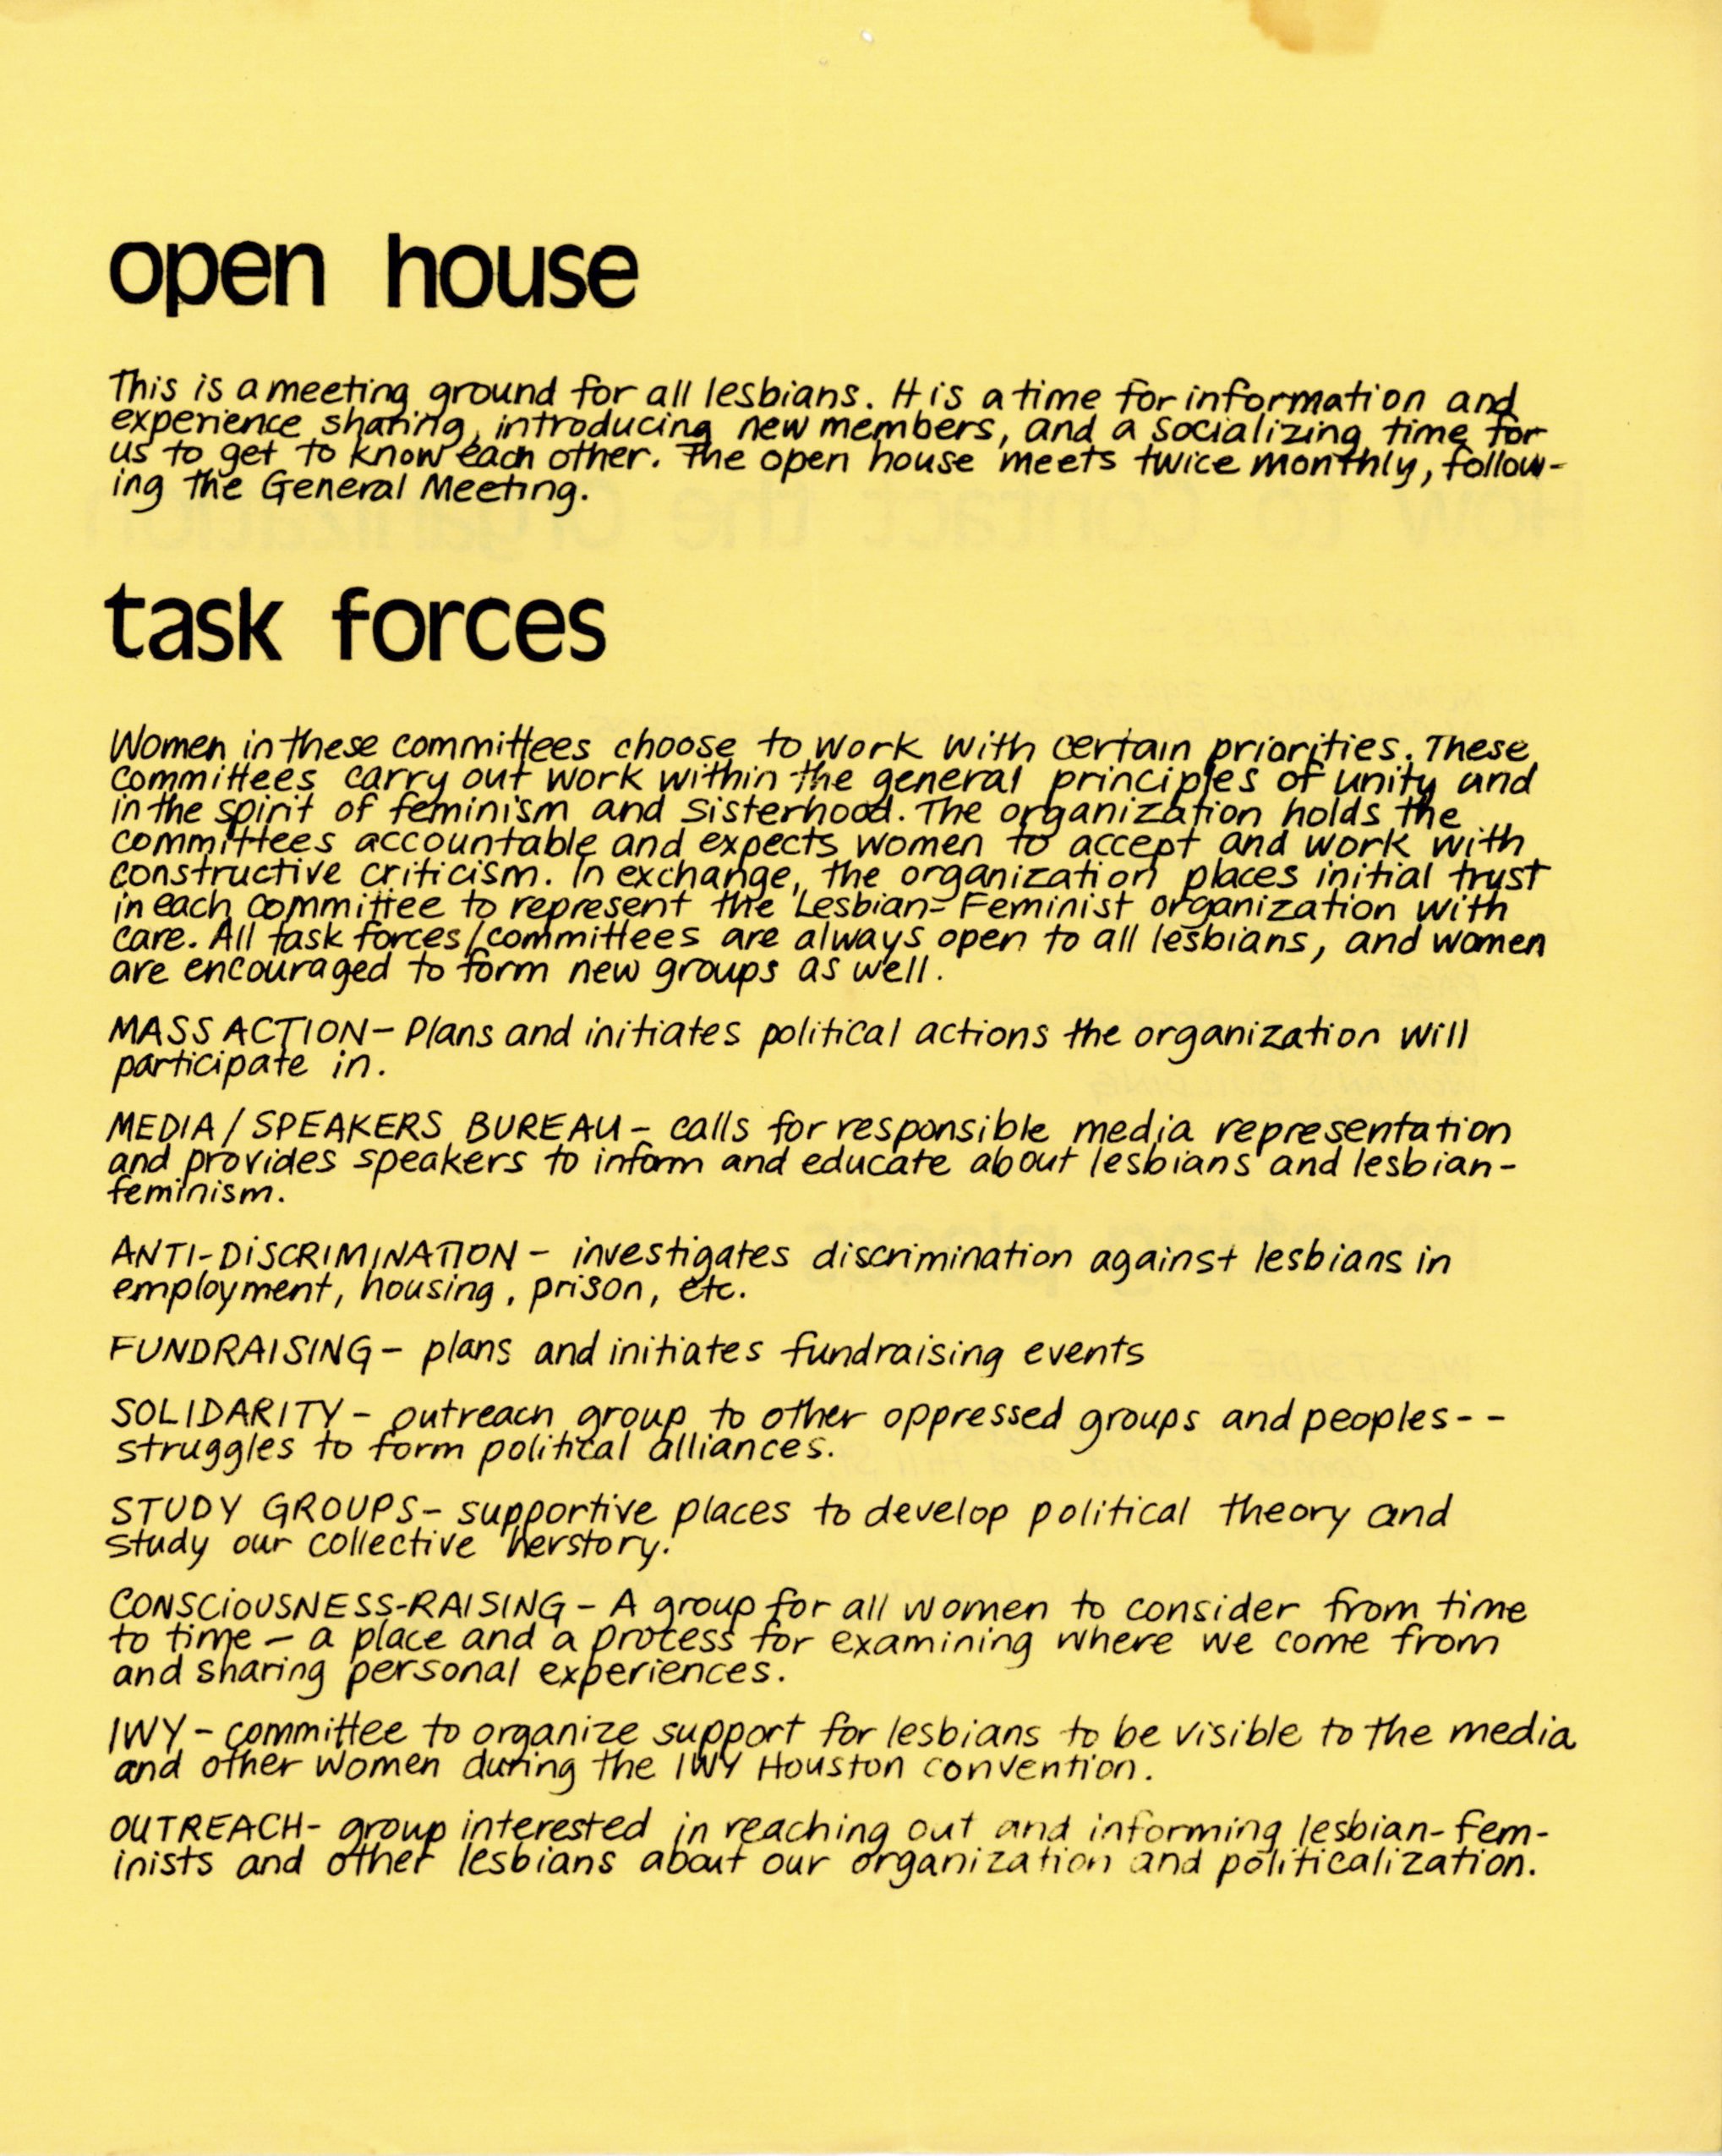 open house
This is a meeting ground for all lesbians. It is a time for information and
experience sharing, introducing new members, and a socializing time for
us to get to know each other. The open house meets twice monthly, follow-
ing the General Meeting.
task forces
Women in these committees choose to work with certain priorities. These
committees carry out work within the general principles of unity and
in the spirit of feminism and sisterhood. The organization holds the
committees accountable and expects women to accept and work with
constructive criticism. In exchange, the organization places initial trust
in each committee to represent the Lesbian-Feminist organization with
care. All task forces/committees are always open to all lesbians, and women
are encouraged to form new groups as well.
MASS ACTION- Plans and initiates political actions the organization will
participate in.
MEDIA/SPEAKERS BUREAU- calls for responsible media representation
and provides speakers to inform and educate about lesbians and lesbian-
feminism.
ANTI-DISCRIMINATION - investigates discrimination against lesbians in
employment, housing, prison, etc.
FUNDRAISING- plans and initiates fundraising events
SOLIDARITY- outreach group to other oppressed groups and peoples--
struggles to form political alliances.
STUDY GROUPS- supportive places to develop political theory and
study our collective herstory.
CONSCIOUSNESS-RAISING - A group for all women to consider from time
to time - a place and a process for examining where we come from
and sharing personal experiences.
IWY - committee to organize support for lesbians to be visible to the media
and other women during the IWY Houston convention.
OUTREACH- group interested in reaching out and informing lesbian-fem-
inists and other lesbians about our organization and politicalization.